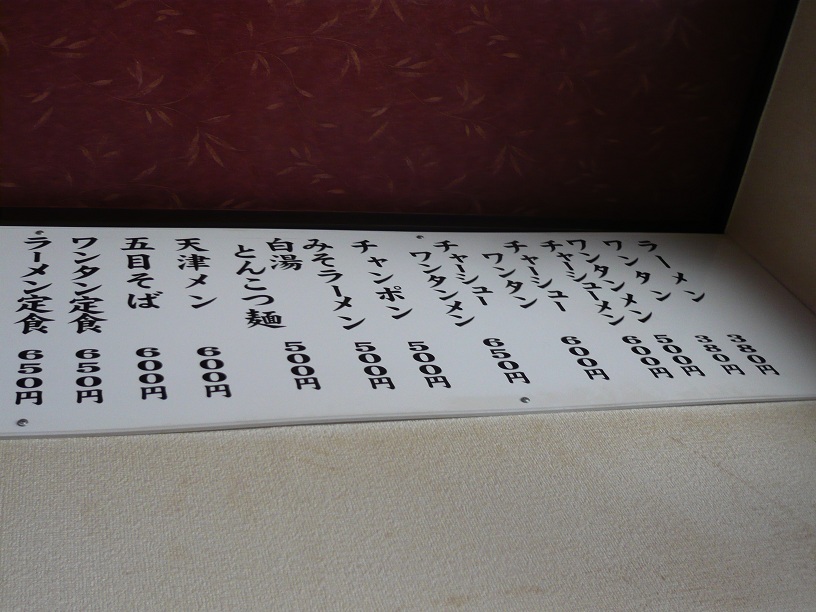 ラーメン 380円
ワンタン 380円
ワンタンメン 500円
チャーシューメン 600円
チャーシュー
ワンタン 600円
チャーシュー
ワンタンメン 650円
チャンポン 500円
みそラーメン 500円
白湯
とんこつ麺 500円
天津メン 600円
五目そば 600円
ワンタン定食 650円
ラーメン定食 650円